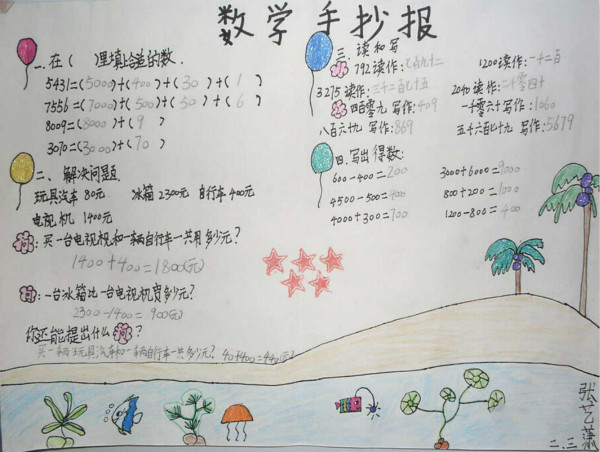 数学手抄报
一.在(  )里填上合适的数.
5431=(5000)+(400)+(30)+(1)
7556=(7000)+(500)+(50)+(6)
8009=(8000)+(9)
3070=(3000)+(70)
二、解决问题.
玩具汽车 80元 冰箱 2300元 自行车 400元
电视机 1400元
问:买一台电视机和一辆自行车一共用多少元?
1400+400=1800(元)
问:一台冰箱比一台电视机贵多少元?
2300-1400=900(元)
你还能提出什么问?
买一辆玩具汽车和一辆自行车一共多少元?
三.读和写
792读作:七百九十二 1200读作:一千二百
3275读作:三千二百七十五 2040读作:二千零四十
四百零九 写作:409 一千零六十 写作:1060
八百六十九 写作:869 五千六百七十九 写作:5679
四.写出得数:
600-400=200 3000+6000=9000
4500-500= 800+200=1000
4000+300=700 1200-800=400
张艺潇
二.三